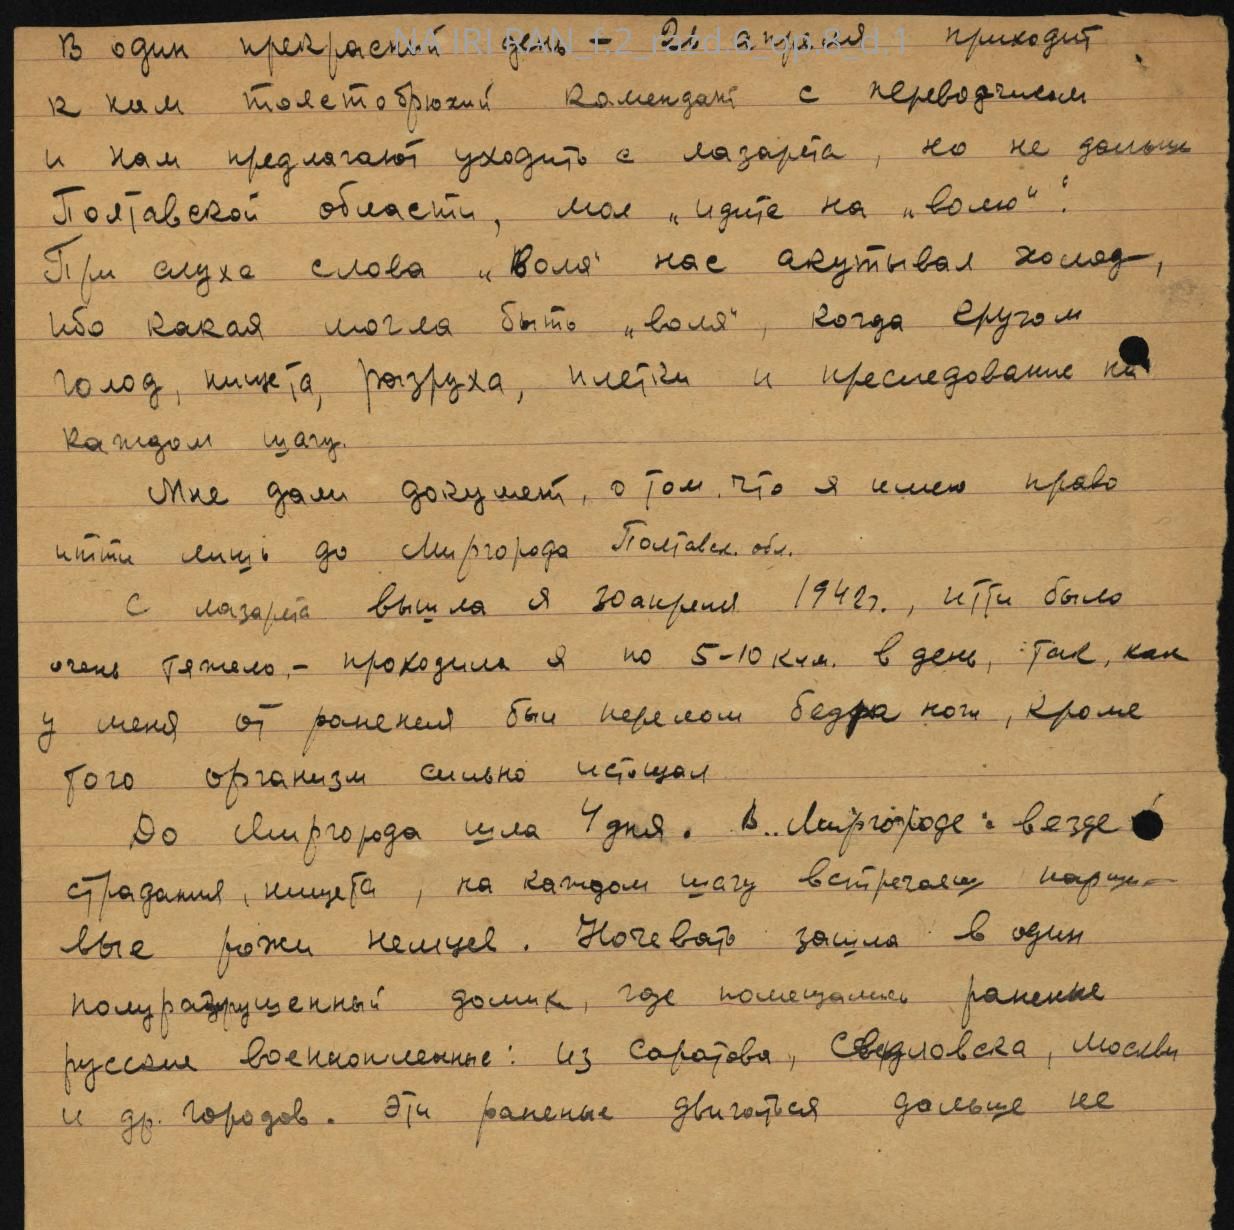 NA IRI RAN_f.2_razd.6_op.8_d.1
В один прекрасный день – апреля приходит
к нам толстобрюхий комендант с переводчиком
и нам предлагают уходить с лазарета, но не дальше
Полтавской области, мол „идите на „волю“.“
При слухе слова „Воля“ нас окутывал холод,
ибо какая могла быть „воля“, когда кругом
голод, нищета, разруха, плетки и преследование на
каждом шагу.
Мне дали документ, о том, что я имею право
итти лишь до Миргорода Полтавск. обл.
С лазарета вышла я 30 апреля 1942 г., итти было
очень тяжело, – проходила я по 5-10 клм. в день, так, как
у меня от ранения был перелом бедра ноги, кроме
того организм сильно истощал
До Миргорода шла 4 дня. В Миргороде: везде
страдания, нищета, на каждом шагу встречаеш парши-
вые рожи немцев. Ночевать зашла в один
полуразрушенный домик, где помещались раненые
русские военнопленные: из Саратова, Свердловска, Москвы
и др. городов. Эти раненые двигаться дальше не